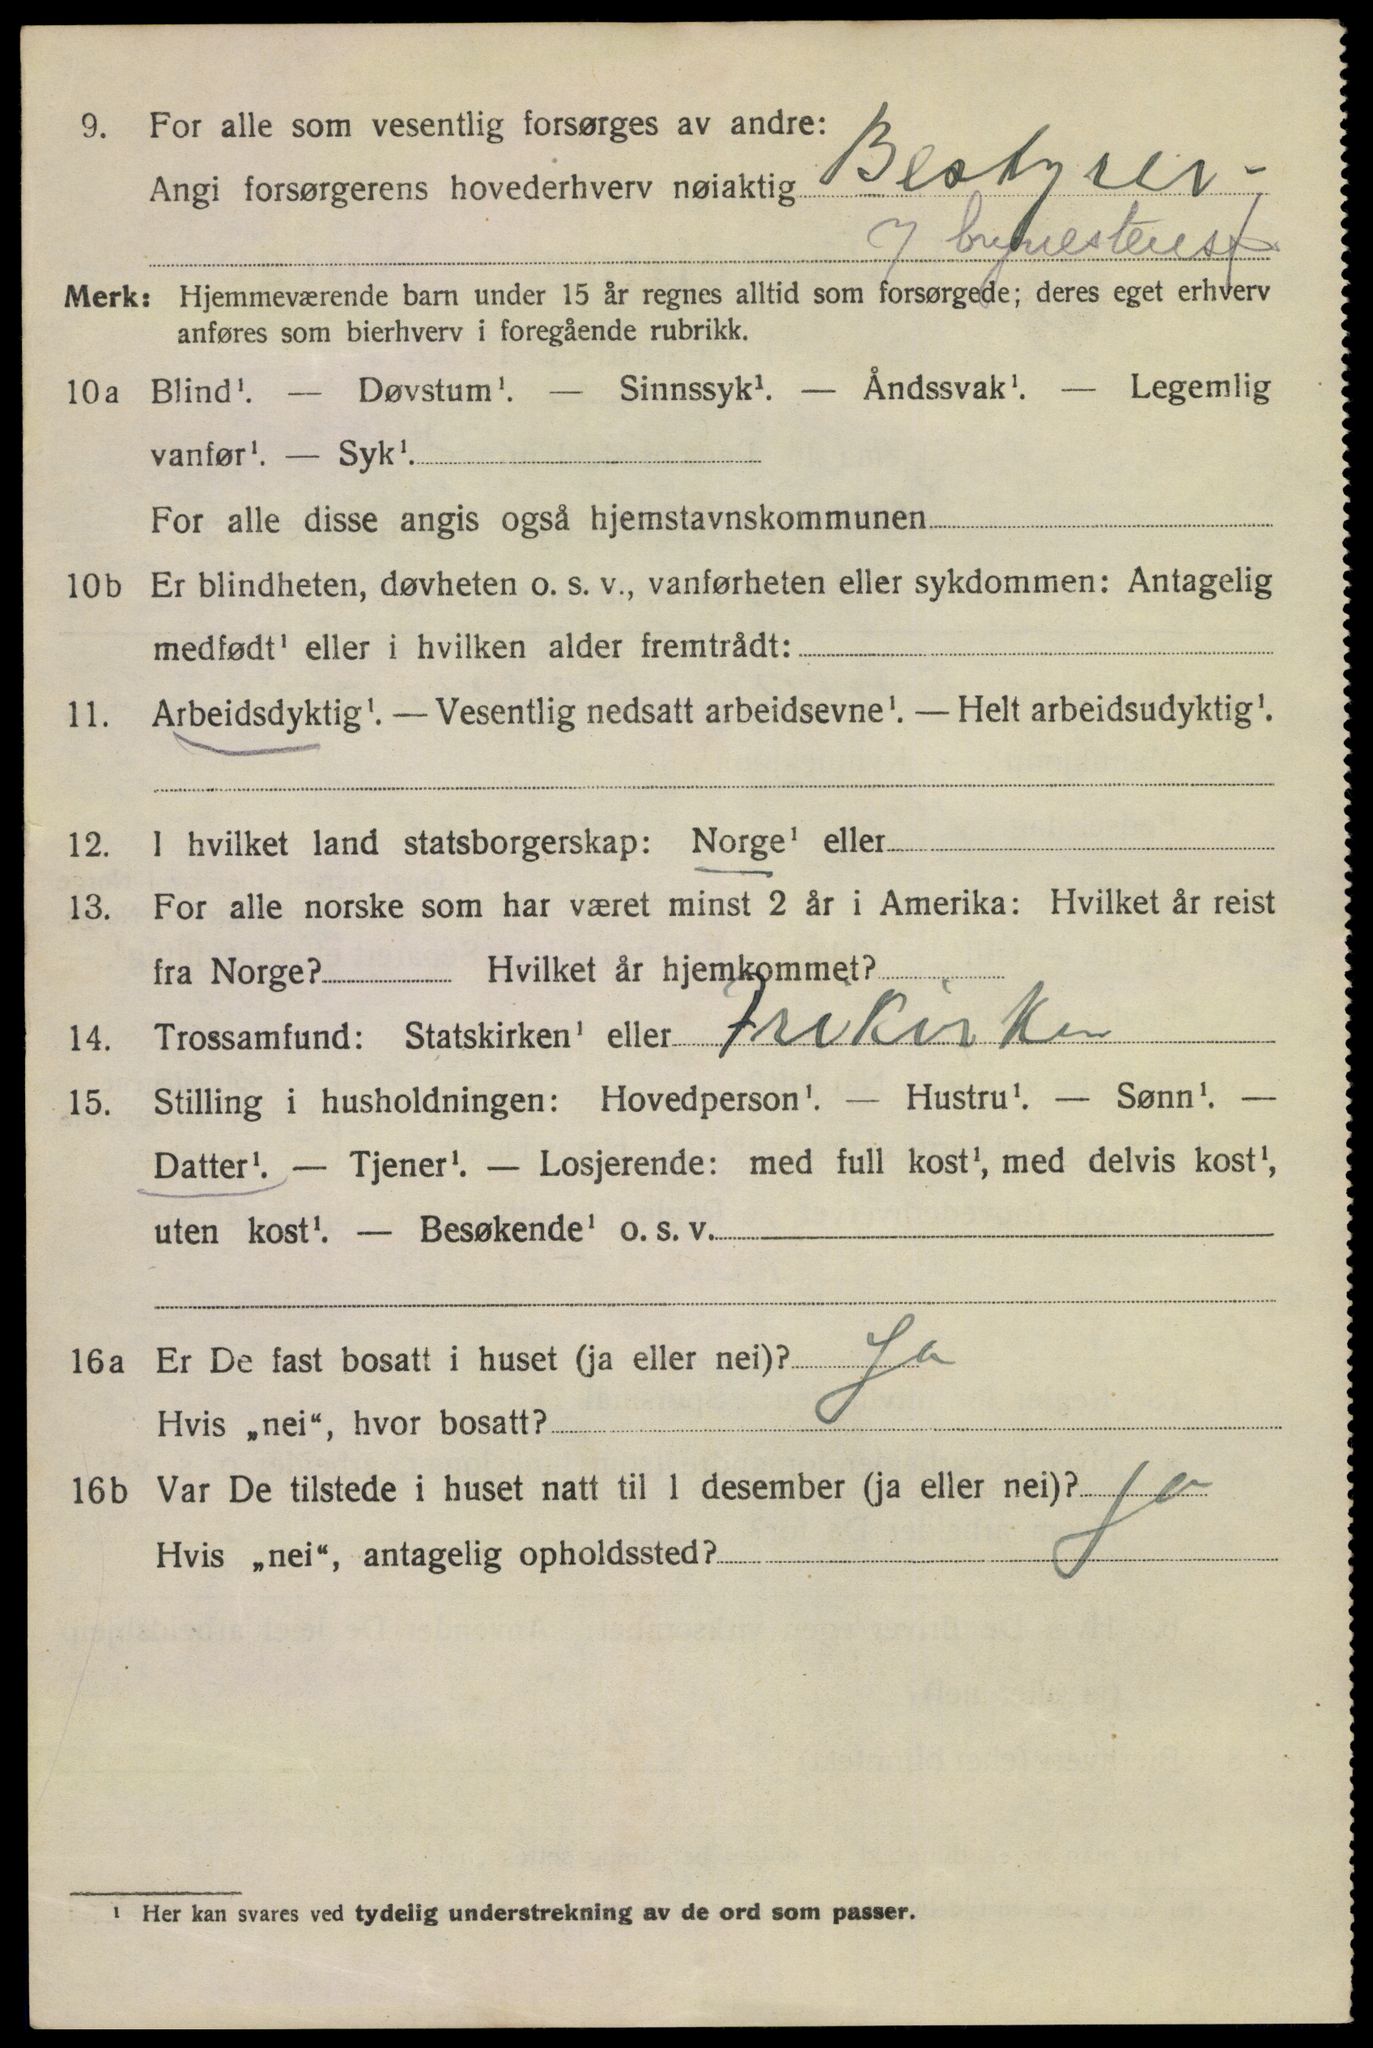 9. For alle som vesentlig forsørges av andre:
Angi forsørgerens hovederhverv nøiaktig Bestyrer -
brynestensf
Merk: Hjemmeværende barn under 15 år regnes alltid som forsørgede; deres eget erhverv
anføres som bierhverv i foregående rubrikk.
10a Blind¹. — Døvstum¹. — Sinnssyk¹. — Åndssvak¹. — Legemlig
vanfør¹. — Syk¹.
For alle disse angis også hjemstavnskommunen
10b Er blindheten, døvheten o. s. v., vanførheten eller sykdommen: Antagelig
medfødt¹ eller i hvilken alder fremtrådt:
11. Arbeidsdyktig¹. — Vesentlig nedsatt arbeidsevne¹. — Helt arbeidsudyktig¹.
12. I hvilket land statsborgerskap: Norge¹ eller
13. For alle norske som har været minst 2 år i Amerika: Hvilket år reist
fra Norge? Hvilket år hjemkommet?
14. Trossamfund: Statskirken¹ eller Frikirken
15. Stilling i husholdningen: Hovedperson¹. — Hustru¹. — Sønn¹. —
Datter¹. — Tjener¹. — Losjerende: med full kost¹, med delvis kost¹,
uten kost¹. — Besøkende¹ o. s. v.
16a Er De fast bosatt i huset (ja eller nei)? Ja
Hvis „nei“, hvor bosatt?
16b Var De tilstede i huset natt til 1 desember (ja eller nei)? Ja
Hvis „nei“, antagelig opholdssted?
¹ Her kan svares ved tydelig understrekning av de ord som passer.